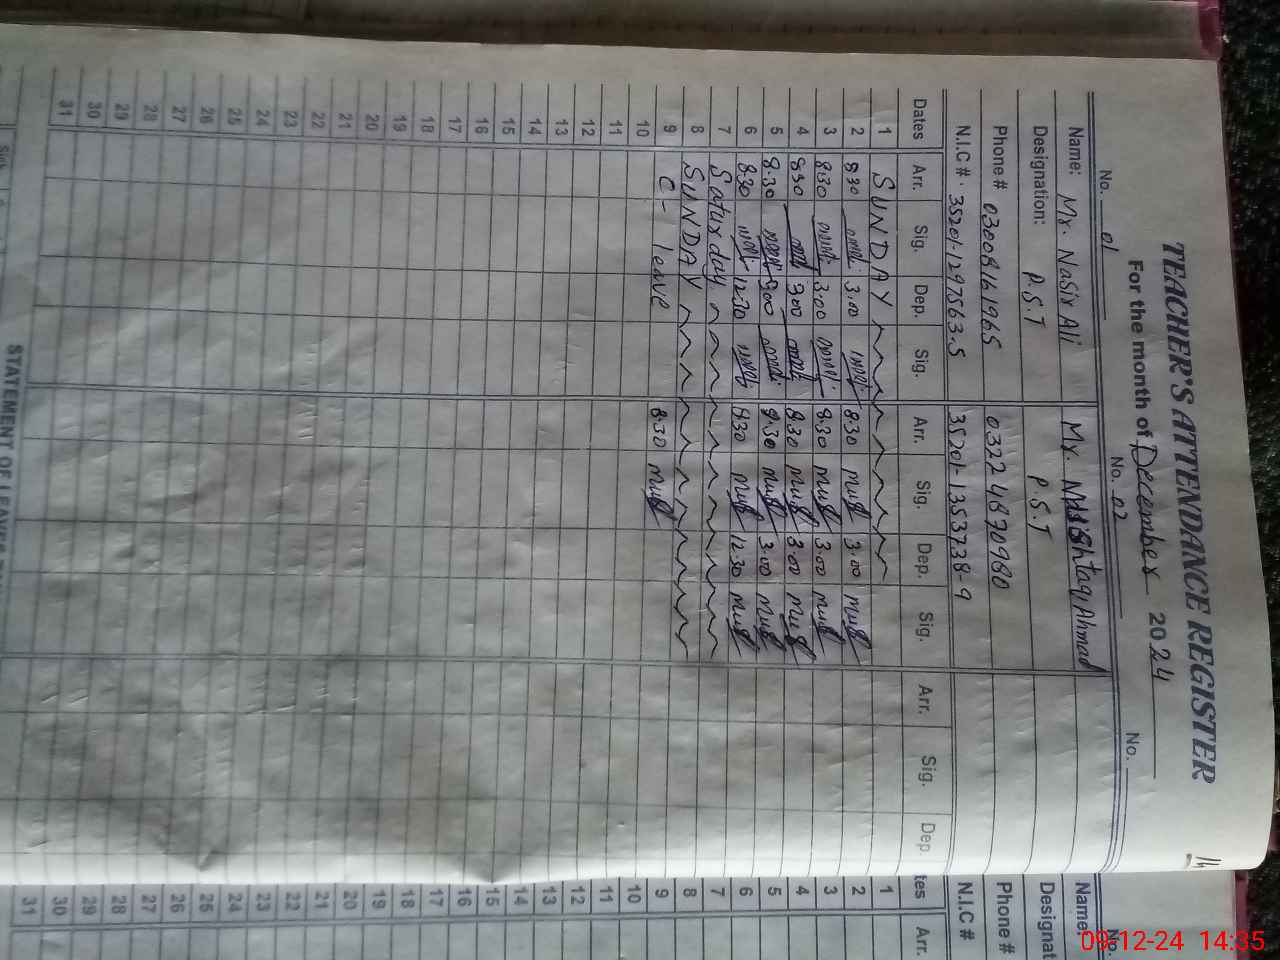 TEACHER'S ATTENDANCE REGISTER
For the month of December 2024
No. 01 No. 02 No.
Name: Mr. Nasir Ali Mr. Mushtaq Ahmad
Designation: P.S.T P.S.T
Phone # 03008161965 0322 4870980
N.I.C #. 35201-1297563-5 35201-1353738-9
Dates Arr. Sig. Dep. Sig. Arr. Sig. Dep. Sig. Arr. Sig. Dep.
1 SUNDAY
2 8:30 3.00 8.30 3.00
3 8.30 3.00 8.30 3.00
4 8.30 3.00 8.30 3.00
5 8.30 3.00 8.30 3.00
6 8.30 12.30 8.30 12.30
7 Saturday
8 SUNDAY
9 C- leave 8.30
10
11
12
13
14
15
16
17
18
19
20
21
22
23
24
25
26
27
28
29
30
31
STATEMENT OF LEAVES
14
No.
Name:
Designat
Phone #
N.I.C #
tes Arr.
1
2
3
4
5
6
7
8
9
10
11
12
13
14
15
16
17
18
19
20
21
22
23
24
25
26
27
28
29
30
31
09-12-24 14:35